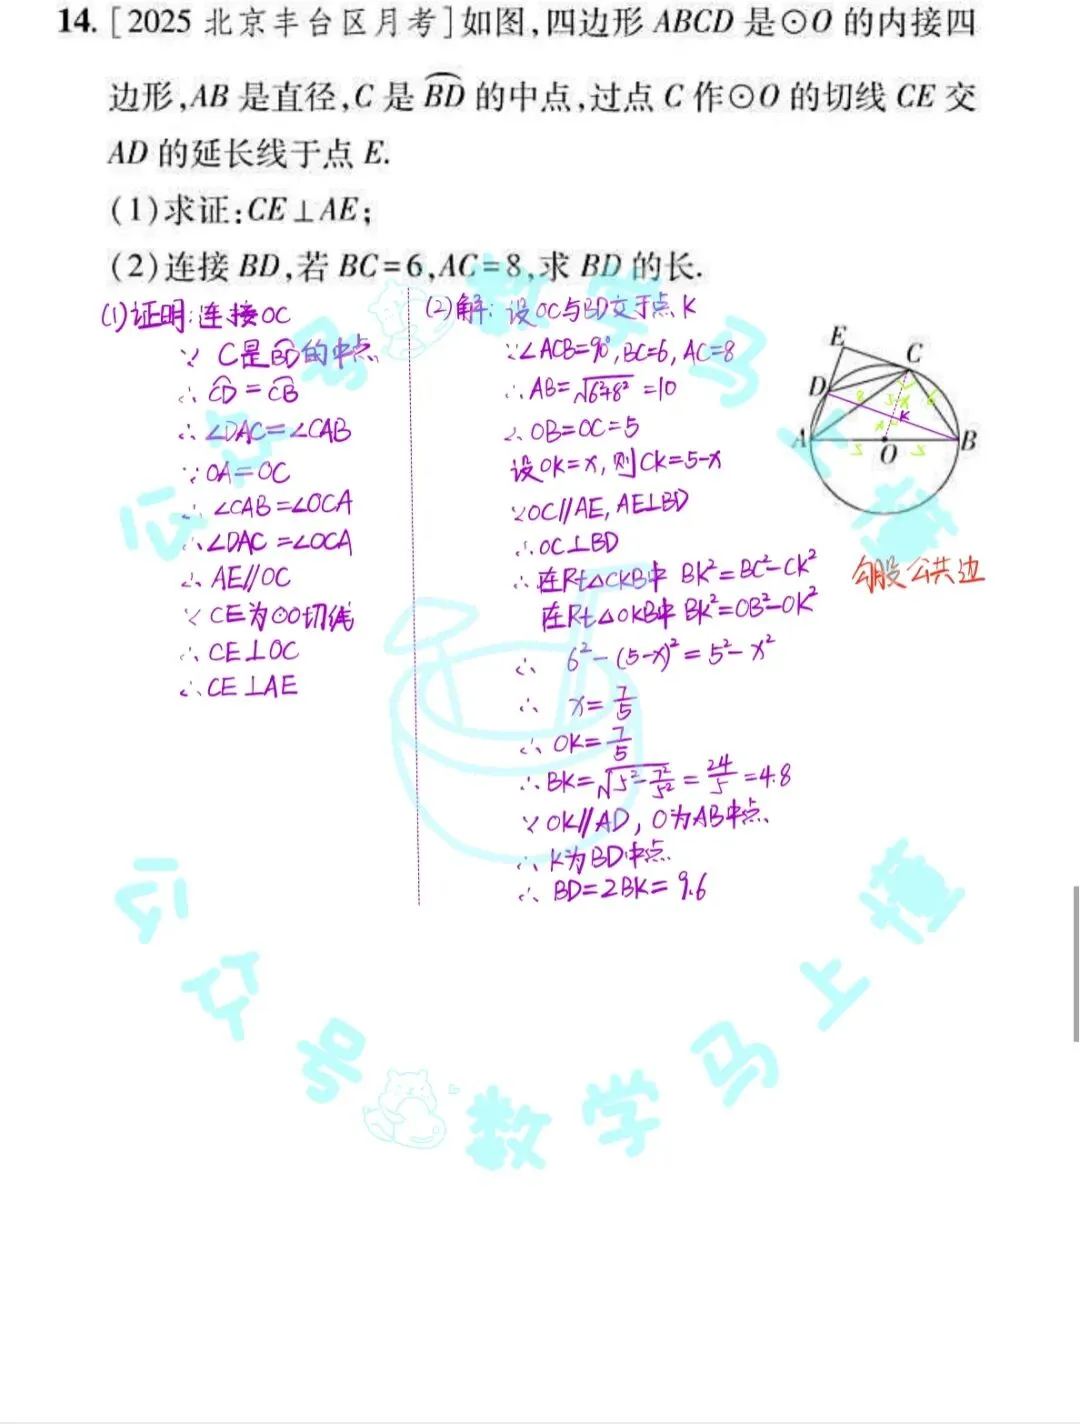 14.[2025 北京丰台区月考]如图,四边形 ABCD 是⊙O 的内接四
边形,AB 是直径,C 是 B͡D 的中点,过点 C 作⊙O 的切线 CE 交
AD 的延长线于点 E.
(1)求证:CE⊥AE;
(2)连接 BD,若 BC=6,AC=8,求 BD 的长.
(1)证明:连接OC
∵ C是B͡D的中点
∴ C͡D=C͡B
∴ ∠DAC=∠CAB
∵ OA=OC
∴ ∠CAB=∠OCA
∴ ∠DAC=∠OCA
∴ AE//OC
∵ CE为⊙O切线
∴ CE⊥OC
∴ CE⊥AE
(2)解:设OC与BD交于点K
∵∠ACB=90°,BC=6,AC=8
∴AB=√6²+8² =10
∴ OB=OC=5
设OK=x,则CK=5-x
∵OC//AE,AE⊥BD
∴OC⊥BD
∴在Rt△CKB中 BK²=BC²-CK²
在Rt△OKB中 BK²=OB²-OK²
∴ 6²-(5-x)²=5²-x²
∴ x=7/5
∴ OK=7/5
∴BK=√5²-7²/5² =24/5=4.8
∵ OK//AD,O为AB中点
∴ K为BD中点
∴ BD=2BK=9.6
E
C
D
8
5-x
6
K
x
A
B
5
O
5
勾股公共边
公众号
数学马上懂
公众号
数学马上懂